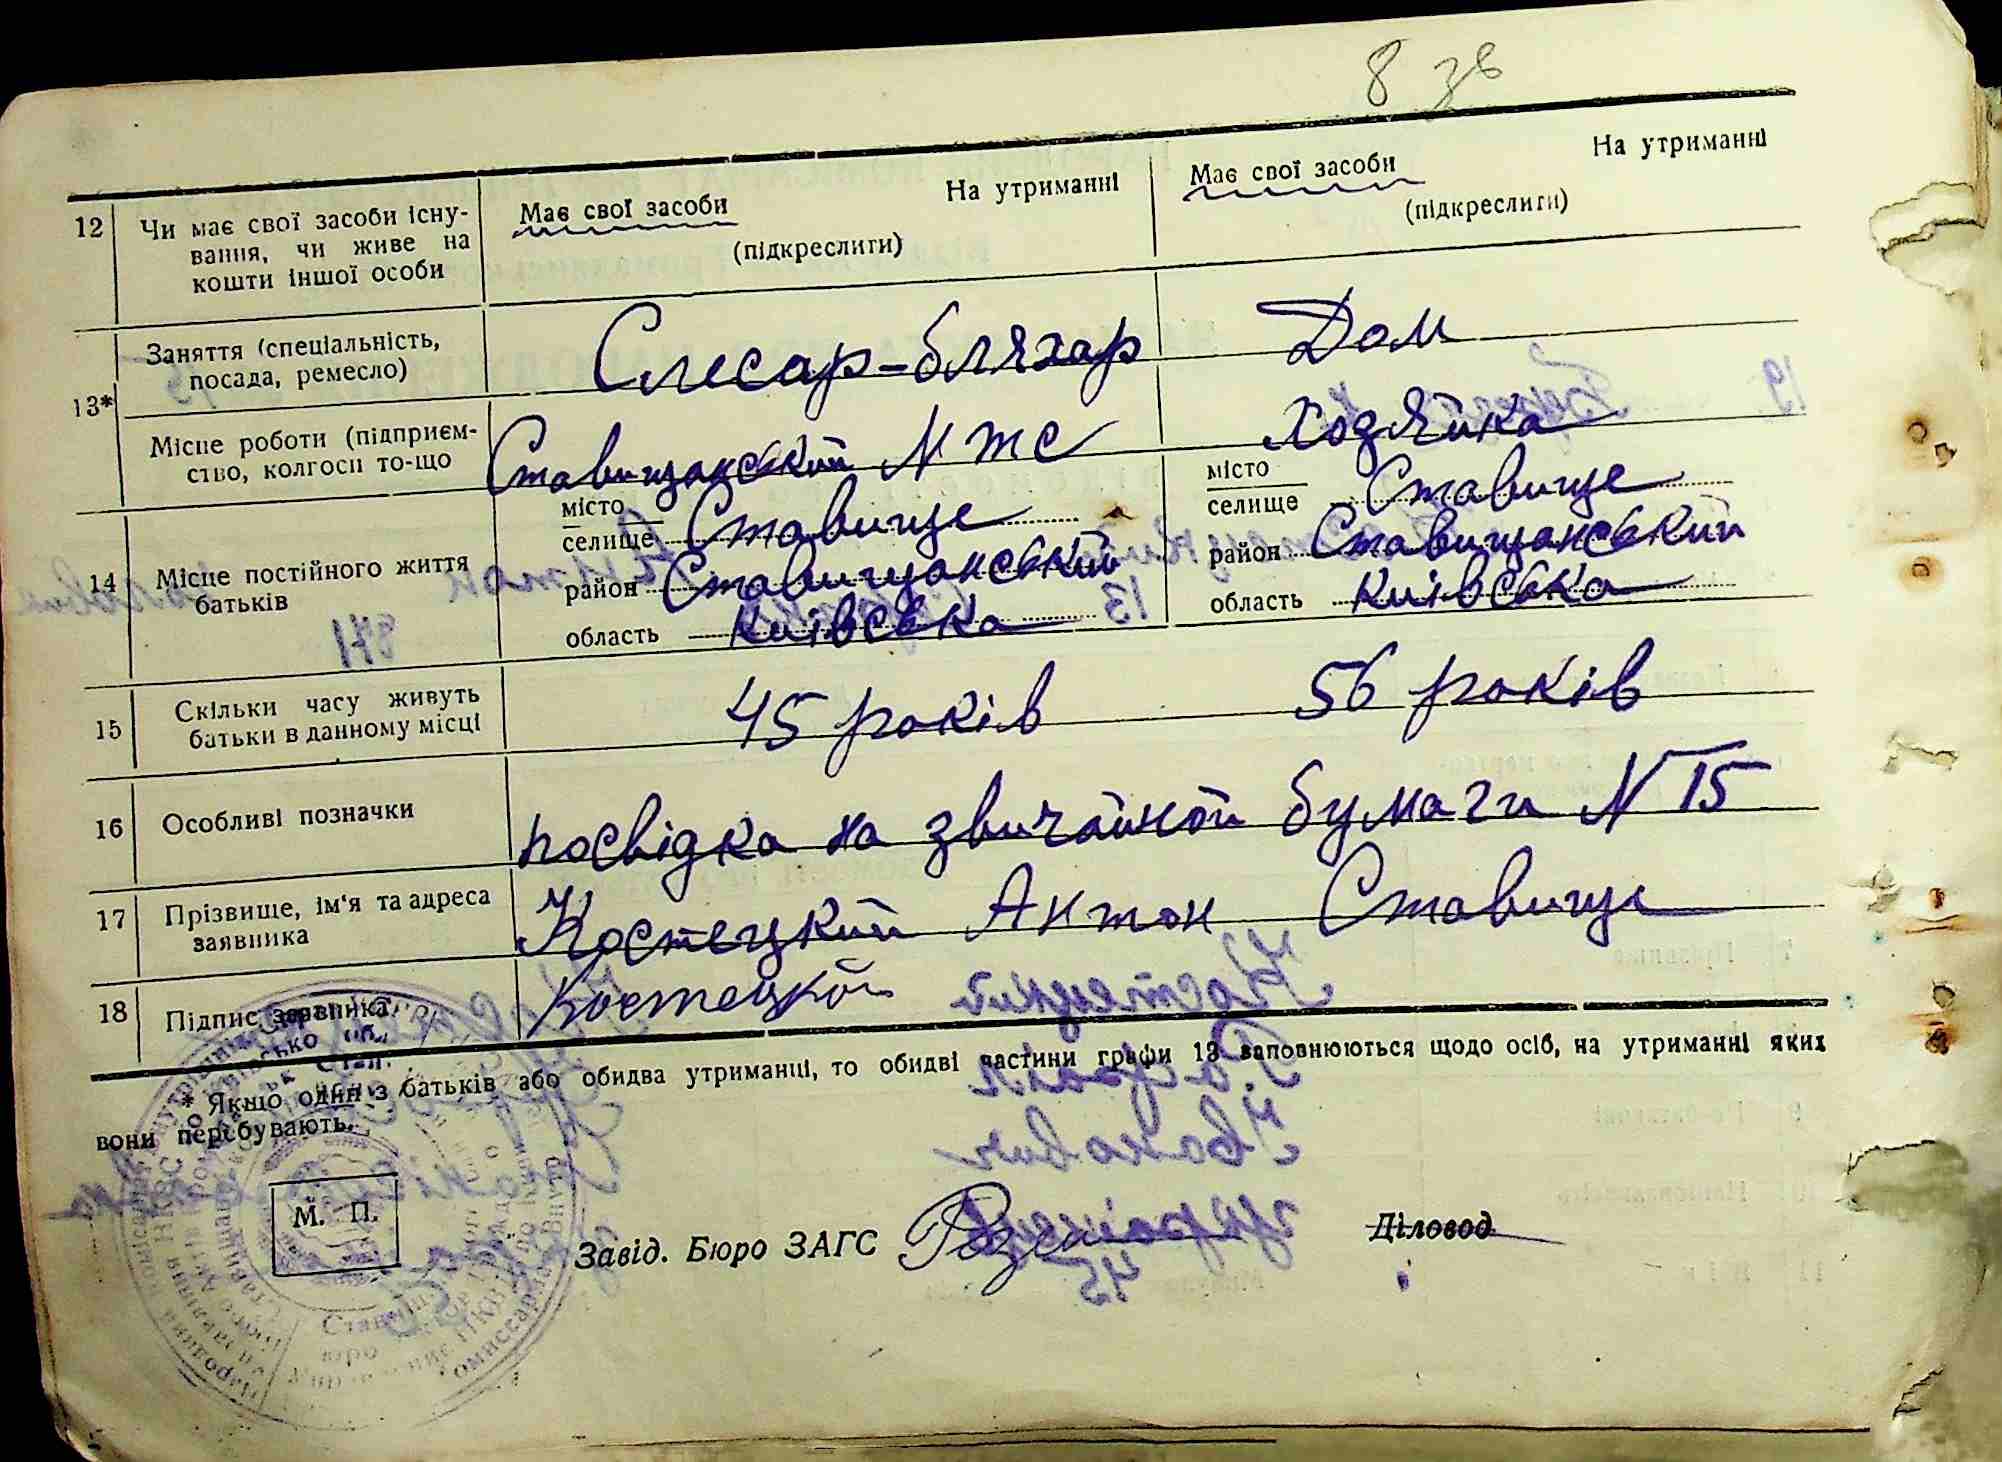 8 зв
12 Чи має свої засоби існу-
вання, чи живе на
кошти іншої особи
Має свої засоби На утриманні
(підкреслити)
Має свої засоби На утриманні
(підкреслити)
13*
Заняття (спеціальність,
посада, ремесло)
Слесар-бляхар
Дом
Місце роботи (підприєм-
ство, колгосп то-що
Ставищанський МТС
Ходяйка
14 Місце постійного життя
батьків
місто
селище Ставище
район Ставищанський
область Київська
місто
селище Ставище
район Ставищанський
область Київська
15 Скільки часу живуть
батьки в данному місці
45 років
56 років
16 Особливі позначки
посвідка на звичайной бумаги N 15
17 Прізвище, ім'я та адреса
заявника
Костецкий Антон Ставище
18 Підпис заявника
Костецкой
* Якщо один з батьків або обидва утриманці, то обидві частини графи 13 заповнюються щодо осіб, на утриманні яких
вони перебувають.
М. П.
Завід. Бюро ЗАГС
Діловод